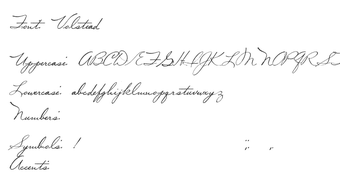 Font: Volstead
Uppercase: ABCDEFGHIJKLMNOPQRS
Lowercase: abcdefghijklmnopqrstuvwxyz
Numbers:
Symbols: ! ; ,
Accents